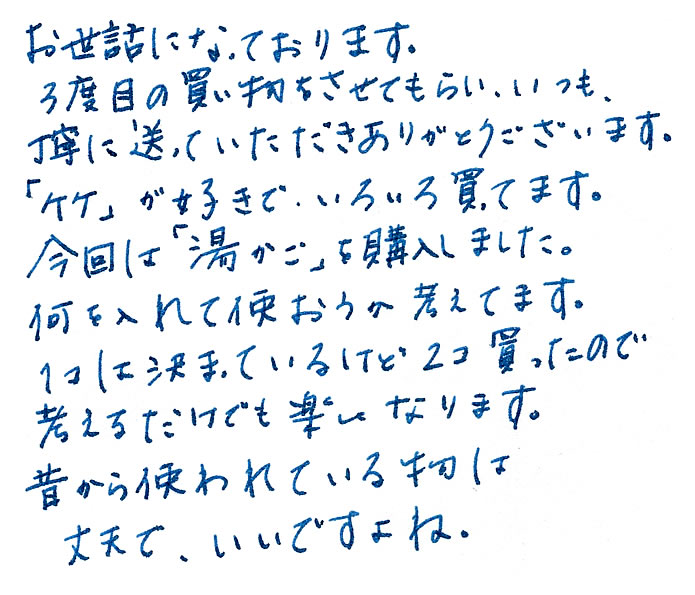 お世話になっております。
3度目の買い物をさせてもらい、いつも、
丁寧に送っていただきありがとうございます。
「竹」が好きで、いろいろ買ってます。
今回は「湯かご」を購入しました。
何を入れて使おうか考えてます。
1コは決まっているけど2コ買ったので
考えるだけでも楽しくなります。
昔から使われている物は
丈夫で、いいですよね。